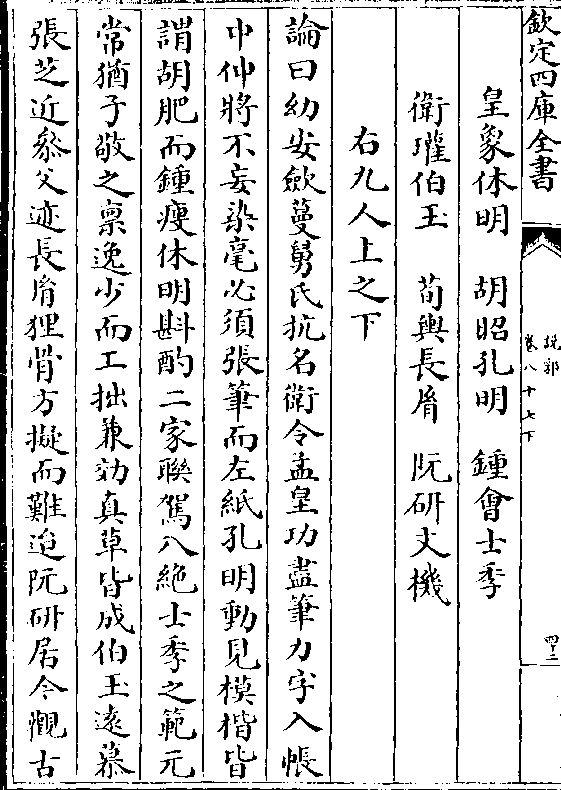 欽定四庫全書
說郛
卷八十七下
四十二
皇象休明 胡昭孔明 鍾會士季
衛瓘伯玉 荀輿長胤 阮研文機
右九人上之下
論曰幼安歛蔓舅氏抗名衛令孟皇功盡筆力字入帳
中仲將不妄染毫必須張筆而左紙孔明動見模楷皆
謂胡肥而鍾瘦休明斟酌二家聯駕八絶士季之範元
常猶子敬之禀逸少而工拙兼効真草皆成伯玉遠慕
張芝近叅父迹長胤狸骨方擬而難迨阮研居今觀古